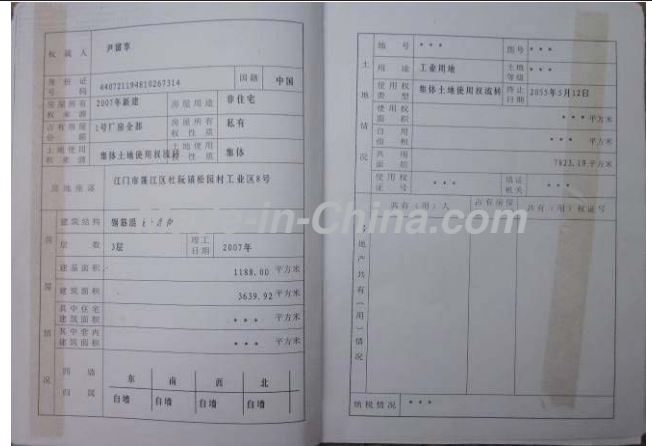 权属人 尹留享
身份证号码 440721194810267314 国籍 中国
房屋所有权来源 2007年新建 房屋用途 非住宅
占有房屋份额 1号厂房全部 房屋所有权性质 私有
土地使用权来源 集体土地使用权流转 土地使用权性质 集体
房地坐落 江门市蓬江区杜阮镇松园村工业区8号
房屋情况
建筑结构 钢筋混
层数 3层 竣工日期 2007年
建基面积 1188.00 平方米
建筑面积 3639.92 平方米
其中住宅建筑面积 *** 平方米
其中套内建筑面积 *** 平方米
四墙归属 东 南 西 北
自墙 自墙 自墙 自墙
土地情况
地号 *** 图号 ***
用途 工业用地 土地等级 ***
使用权类型 集体土地使用权流转 终止日期 2055年5月12日
使用权面积 *** 平方米
自用面积 *** 平方米
共用面积 7823.19 平方米
使用权证号 *** 填证机关 ***
共有(用)人 占有房屋 共有(用)权证号
房地产共有(用)情况
纳税情况 ***
Made-in-China.com